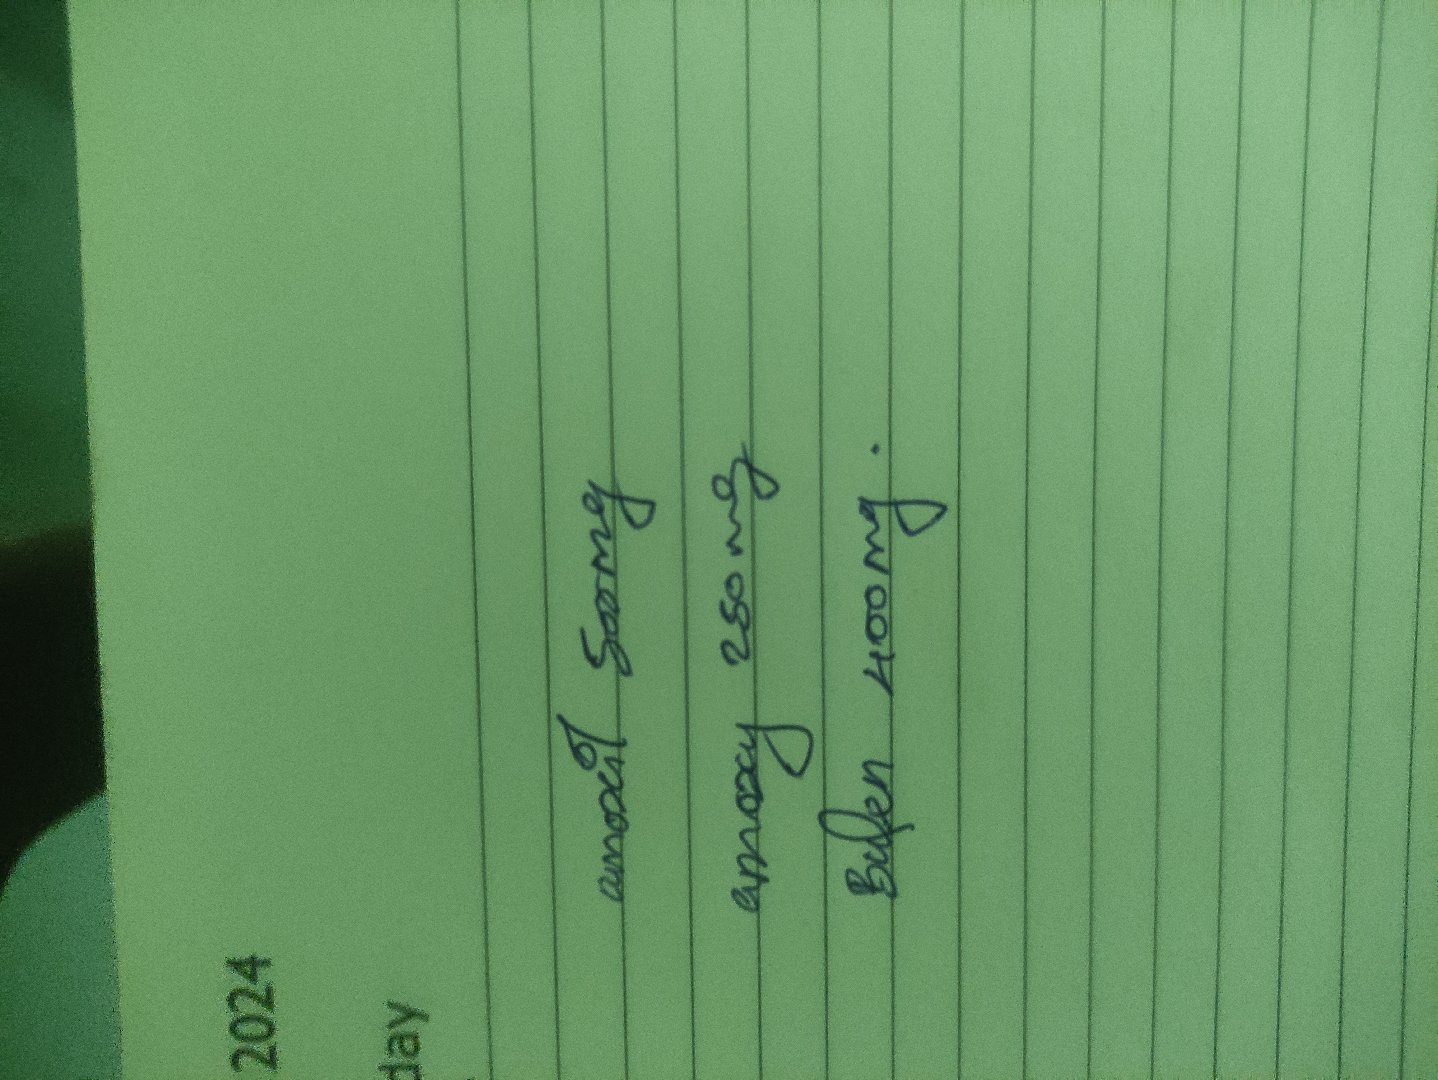 2024
day
amoxil 500mg
amoxy 250 mg
Bufen 400mg.